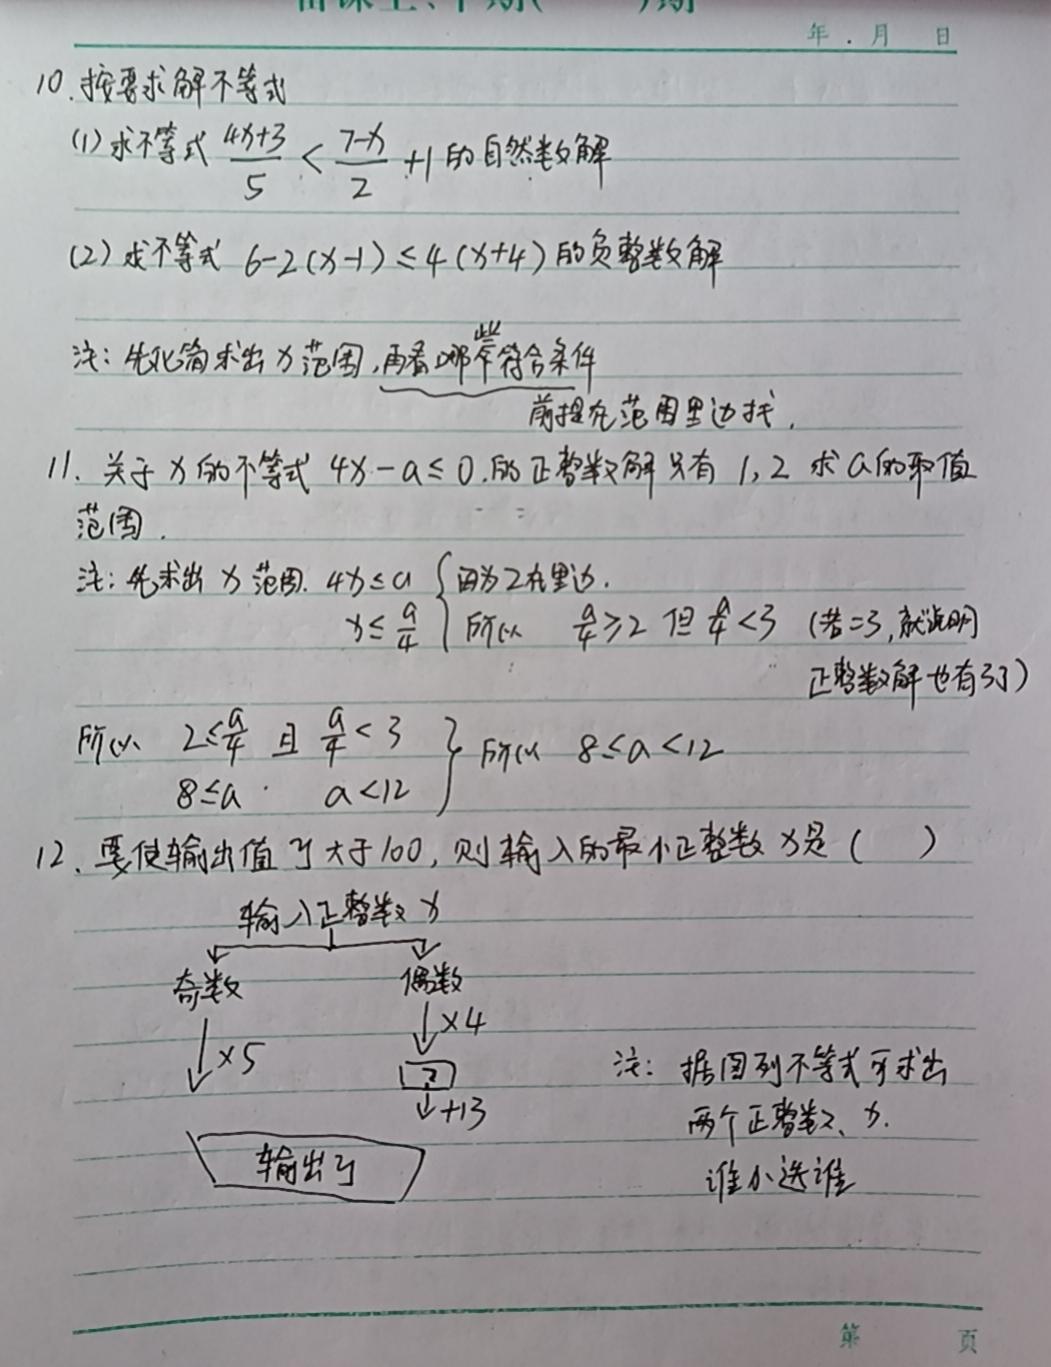 年 . 月 日
10. 按要求解不等式
(1) 求不等式 (4x+3)/5 < (7-x)/2 +1 的自然数解
(2) 求不等式 6-2(x-1) ≤ 4(x+4) 的负整数解
注: 先化简求出 x 范围, 再看哪些符合条件
前提在范围里边找.
11. 关于 x 的不等式 4x-a≤0. 的正整数解只有 1, 2 求 a 的取值
范围.
注: 先求出 x 范围. 4x≤a { 因为2在里边.
x≤a/4 所以 a/4≥2 但 a/4<3 (若=3, 就说明
正整数解也有3了)
所以 2≤a/4 且 a/4<3 } 所以 8≤a<12
8≤a a<12
12. 要使输出值 y 大于100, 则输入的最小正整数 x 是 ( )
输入正整数 x
奇数 偶数
×5 ×4
+13
输出 y
注: 据图列不等式可求出
两个正整数、x.
谁小选谁
第 页